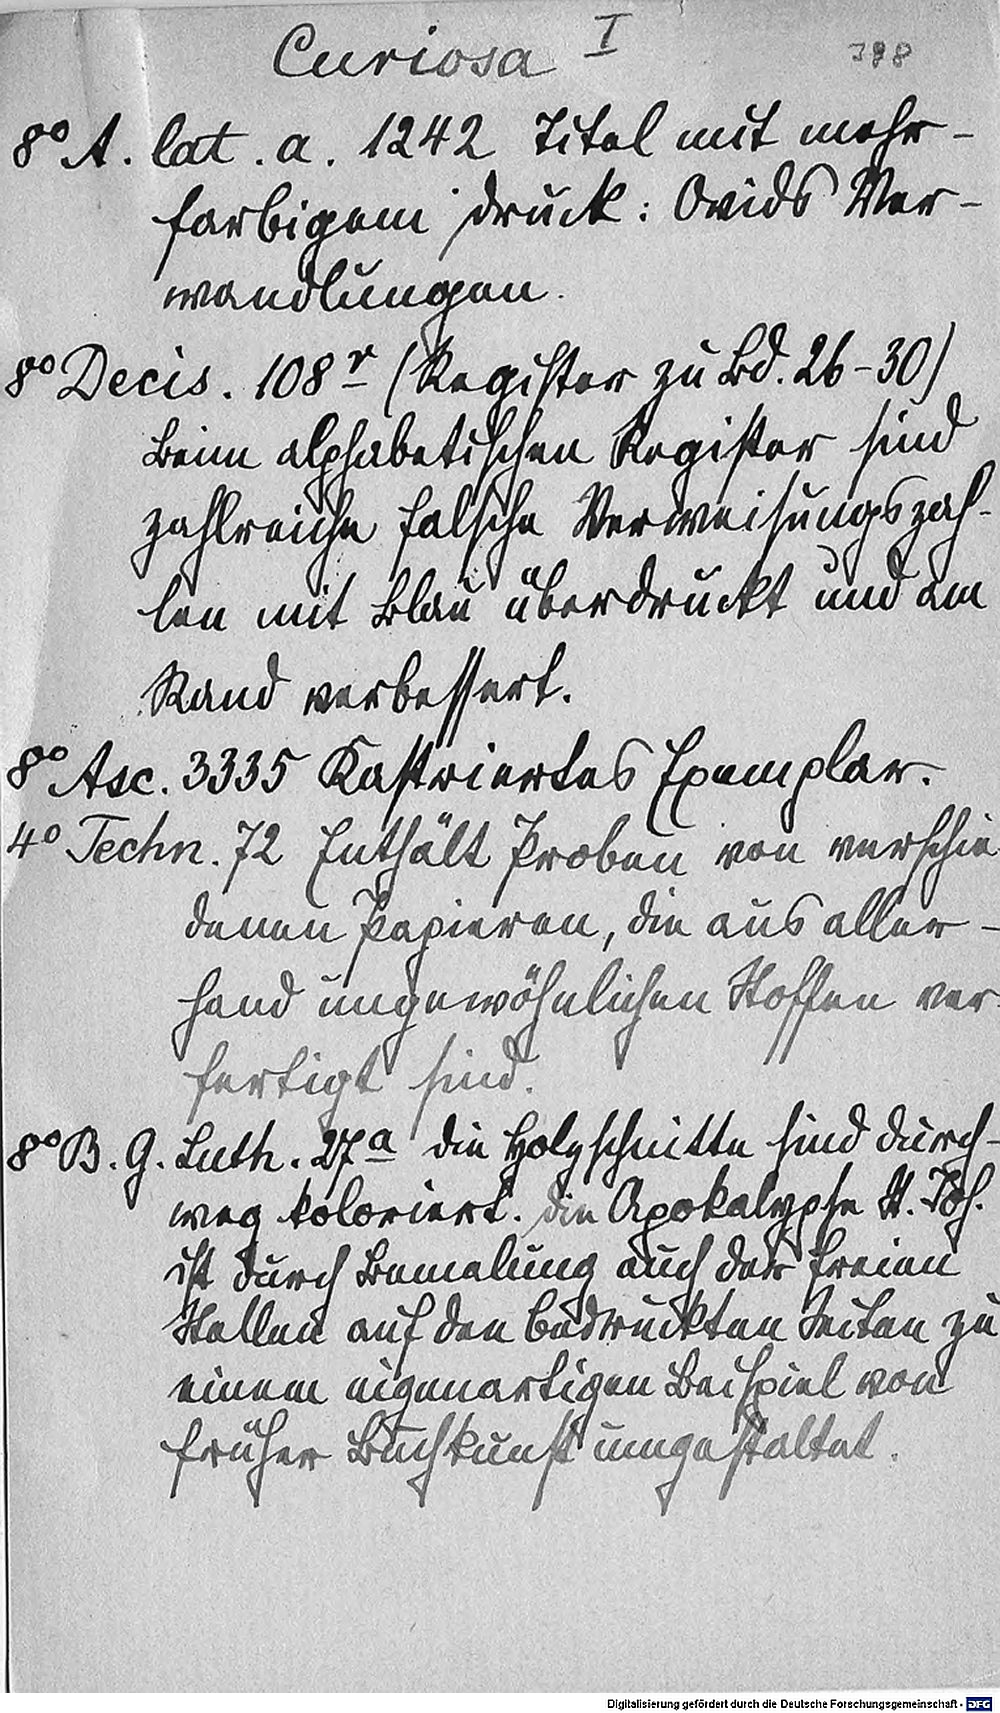 Curiosa I
398
8° A. lat. a. 1242 Titel mit mehr-
farbigem Druck: Ovids Ver-
wandlungen.
8° Decis. 108 r (Register zu Bd. 26-30)
Beim alphabetischen Register sind
zahlreiche falsche Verweisungszah-
len mit Blau überdruckt und am
Rand verbessert.
8° Asc. 3335 Kastriertes Exemplar.
4° Techn. 72 Enthält Proben von verschie-
denen Papieren, die aus aller-
hand ungewöhnlichen Stoffen ver-
fertigt sind.
8° B. G. Luth. 27a Die Holzschnitte sind durch-
weg koloriert. Die Apokalypse St. Joh.
ist durch Bemalung auch der freien
Stellen auf den bedruckten Seiten zu
einem eigenartigen Beispiel von
früher Buchkunst umgestaltet.
Digitalisierung gefördert durch die Deutsche Forschungsgemeinschaft - DFG